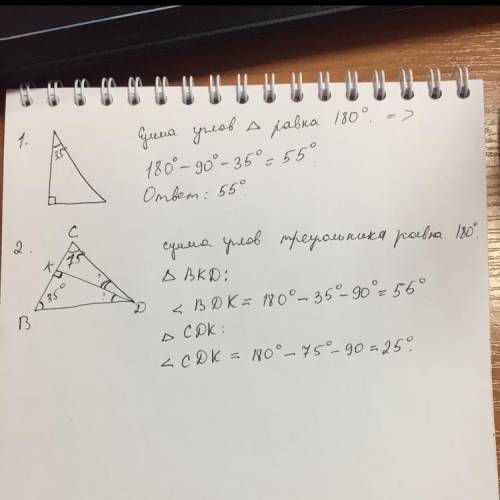 1.
35°
Сумма углов △ равна 180°. =>
180° - 90° - 35° = 55°.
Ответ: 55°.
2.
C
K
75°
B
35°
?
?
D
сумма углов треугольника равна 180°.
△ BKD:
∠ BDK = 180° - 35° - 90° = 55°
△ CDK:
∠ CDK = 180° - 75° - 90 = 25°.